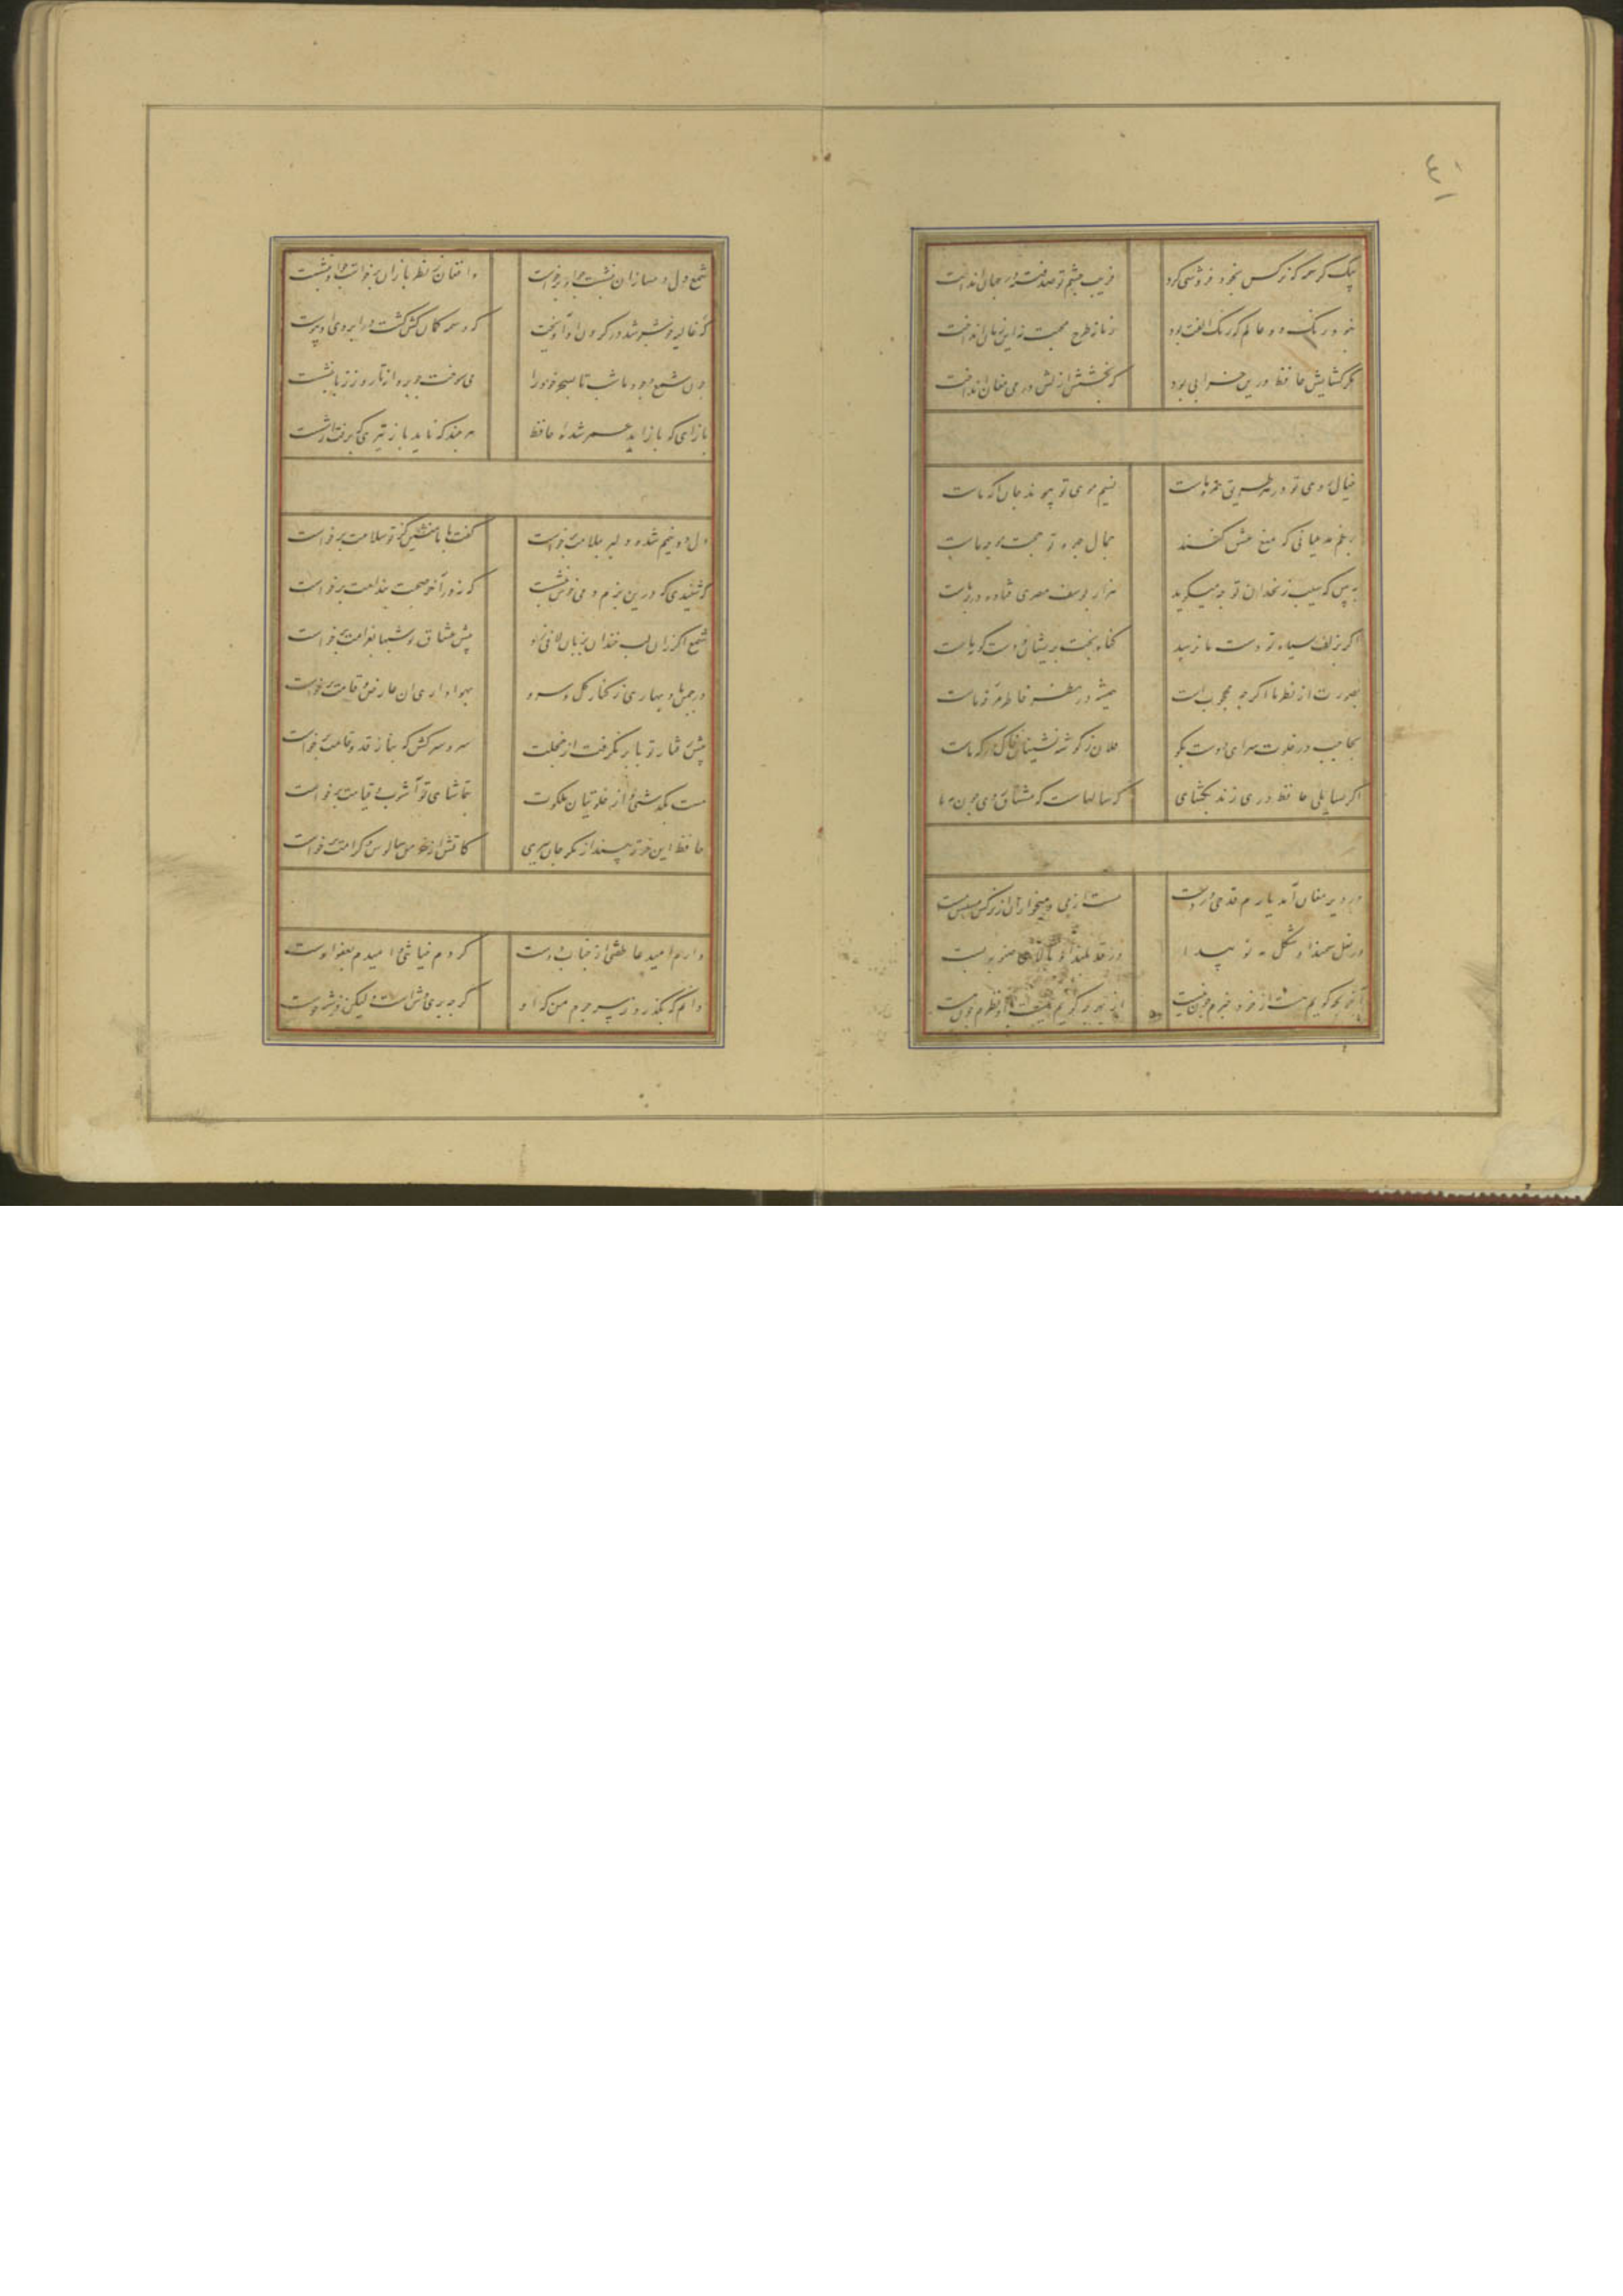 ٤٠
بیک کرشمه که نرکس بخود فروشی کرد فریب چشم تو صد فتنه در جهان انداخت
نبود رنک دو عالم که رنک الفت بود زمانه طرح محبت نه این زمان انداخت
مکر کشایش حافظ درین خرابی بود که بخشش ازلش در می مغان انداخت
خیال روی تو در هر طریق همره ماست نسیم موی تو پیوند جان آکه ماست
برغم مدعیانی که منع عشق کنند جمال چهره تو حجت موجه ماست
به بین که سیب زنخدان تو چه میکوید هزار یوسف مصری فتاده در چه ماست
اکر بزلف سیاه تو دست ما نرسد کناه بخت پریشان و دست کوته ماست
بصورت از نظر ما اکر چه محجوب است همیشه در نظر خاطر مرفه ماست
بحاجب در خلوت سرای دوست بکو فلان ز کوشه نشینان خاک درکه ماست
اکر بسایلی حافظ دری زند بکشای که سالهاست که مشتاق روی چون مه ما
در دیر مغان آمد یارم قدحی در دست مست از می و میخواران از نرکس مستش مست
در نعل سمند او شکل مه نو پیدا وز قد بلند او بالای صنوبر پست
آخر بچه کویم هست از خود خبرم چون نیست از بهر چه کویم نیست با او نظرم چون هست
شمع دل دمسازان بنشست چو او برخواست وافغان ز نظر بازان برخواست چو او بنشست
کر غالیه خوشبو شد در کیسوی او آویخت کر وسمه کمان کش کشت در ابروی او پیوست
چون شمع وجود ما شب تا بسحر خود را می سوخت چو پروانه تا روز ز پا ننشست
باز آی که باز آید عمر شده حافظ هر چند که ناید باز تیری که برفت از شست
دل و دینم شد و دلبر بملامت برخواست کفت با ما منشین کز تو سلامت برخواست
که شنیدی که درین بزم دمی خوش بنشست که نه در آخر صحبت بندامت برخواست
شمع اکر زان لب خندان بزبان لافی زد پیش عشاق تو شبها بغرامت برخواست
در چمن باد بهاری ز کنار کل و سرو بهواداری آن عارض و قامت برخواست
پیش رفتار تو پا بر نکرفت از خجلت سرو سرکش که بناز قد و قامت برخواست
مست بکذشتی و از خلوتیان ملکوت بتماشای تو آشوب قیامت برخواست
حافظ این خرقه بینداز مکر جان ببری کاتش از خرمن سالوس و کرامت برخواست
دارم امید عاطفتی از جناب دوست کردم خیانتی و امیدم بعفو اوست
دانم که بکذرد ز سر جرم من که او کرچه پری وش است ولیکن فرشته خوست